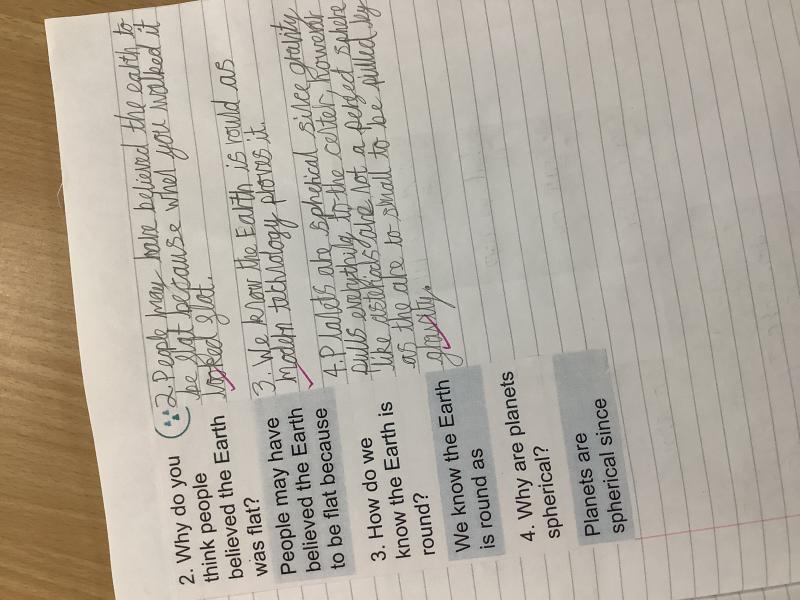 2. Why do you
think people
believed the Earth
was flat?
People may have
believed the Earth
to be flat because
3. How do we
know the Earth is
round?
We know the Earth
is round as
4. Why are planets
spherical?
Planets are
spherical since
2. People may have believed the earth to
be flat because when you walked it
looked flat.
3. We know the Earth is round as
modern technology proves it.
4. Planets are spherical since gravity
pulls everything to the center, however
like asteriods are not a perfect sphere
as the are to small to be pulled by
gravity.